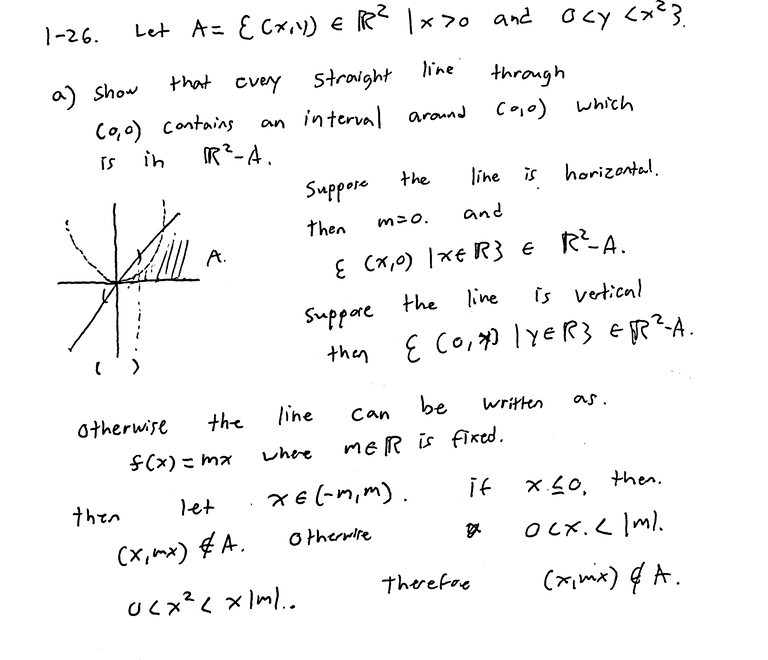 1-26. Let A = {(x,y) ∈ ℝ² | x>0 and 0<y<x²}.
a) Show that every straight line through
(0,0) contains an interval around (0,0) which
is in ℝ²-A.
Suppose the line is horizontal.
then m=0. and
{(x,0) | x∈ℝ} ∈ ℝ²-A.
A.
Suppose the line is vertical
then {(0,y) | y∈ℝ} ∈ ℝ²-A.
( )
otherwise the line can be written as.
f(x)=mx where m∈ℝ is fixed.
then let x∈(-m,m). if x≤0, then.
(x,mx) ∉ A. otherwise 0<x.<|m|.
0<x²<x|m|.. therefore (x,mx) ∉ A.